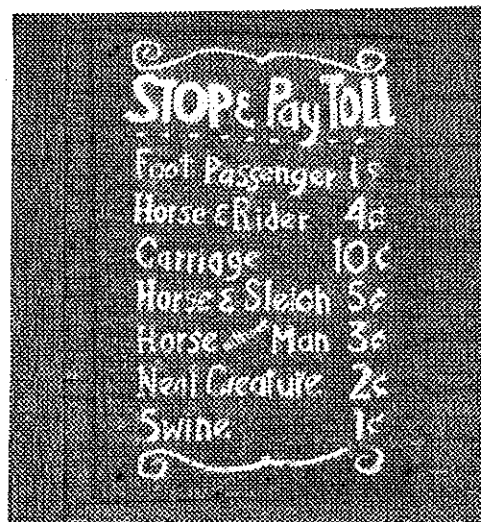 STOP & Pay Toll
Foot Passenger 1¢
Horse & Rider 4¢
Carriage 10¢
Horse & Sleigh 5¢
Horse without Man 3¢
Neat Creature 2¢
Swine 1¢